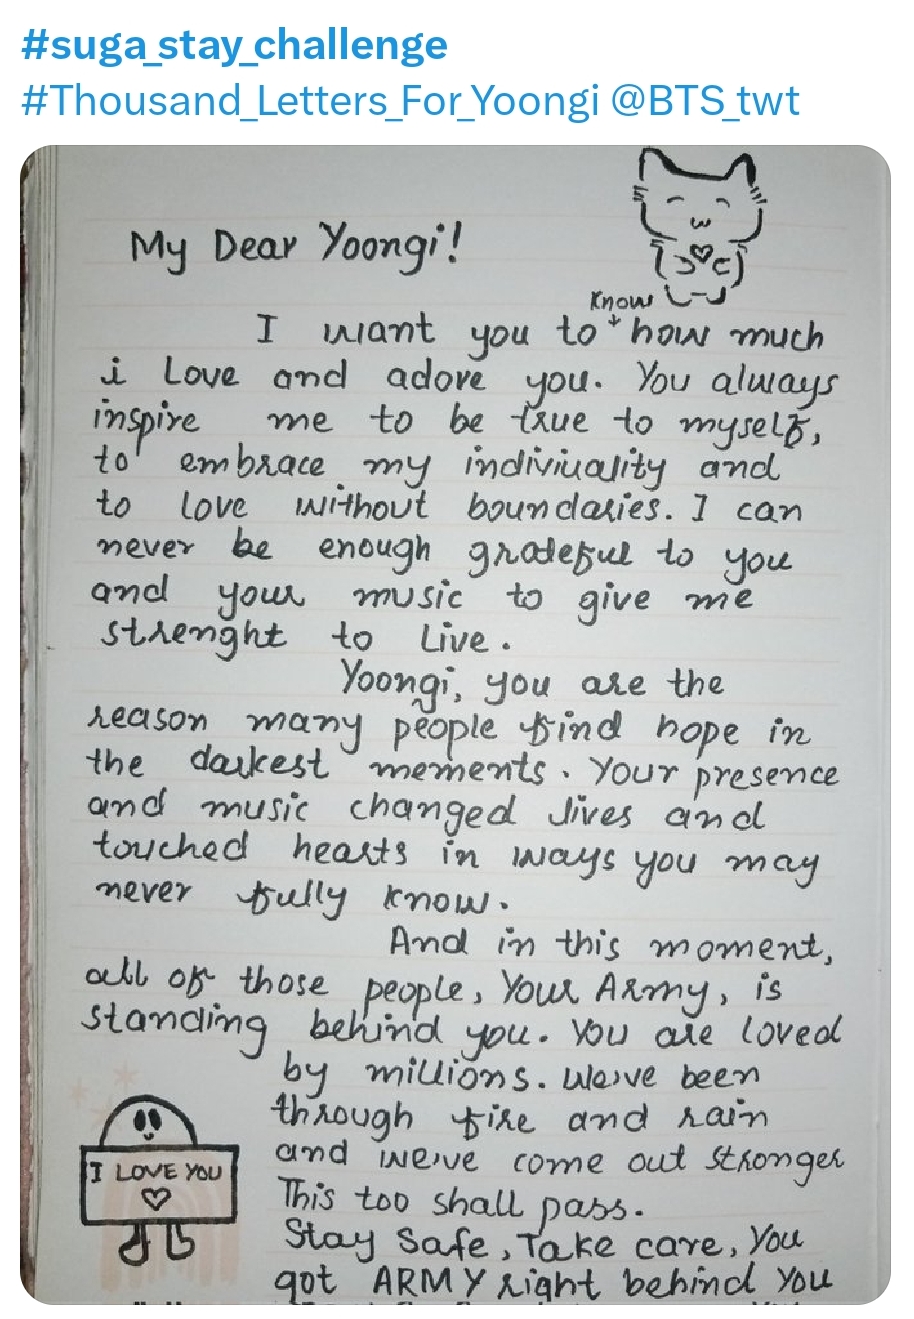 #suga_stay_challenge
#Thousand_Letters_For_Yoongi @BTS_twt
My Dear Yoongi!
Know
I want you to how much
i love and adore you. You always
inspire me to be true to myself,
to embrace my indiviuality and
to love without boundaries. I can
never be enough grateful to you
and your music to give me
strenght to live.
Yoongi, you are the
reason many people find hope in
the darkest mements. Your presence
and music changed lives and
touched hearts in ways you may
never fully know.
And in this moment,
all of those people, Your Army, is
standing behind you. You are loved
by millions. We've been
through fire and rain
and we've come out stronger
This too shall pass.
Stay Safe, Take care, You
got ARMY right behind You
I LOVE YOU